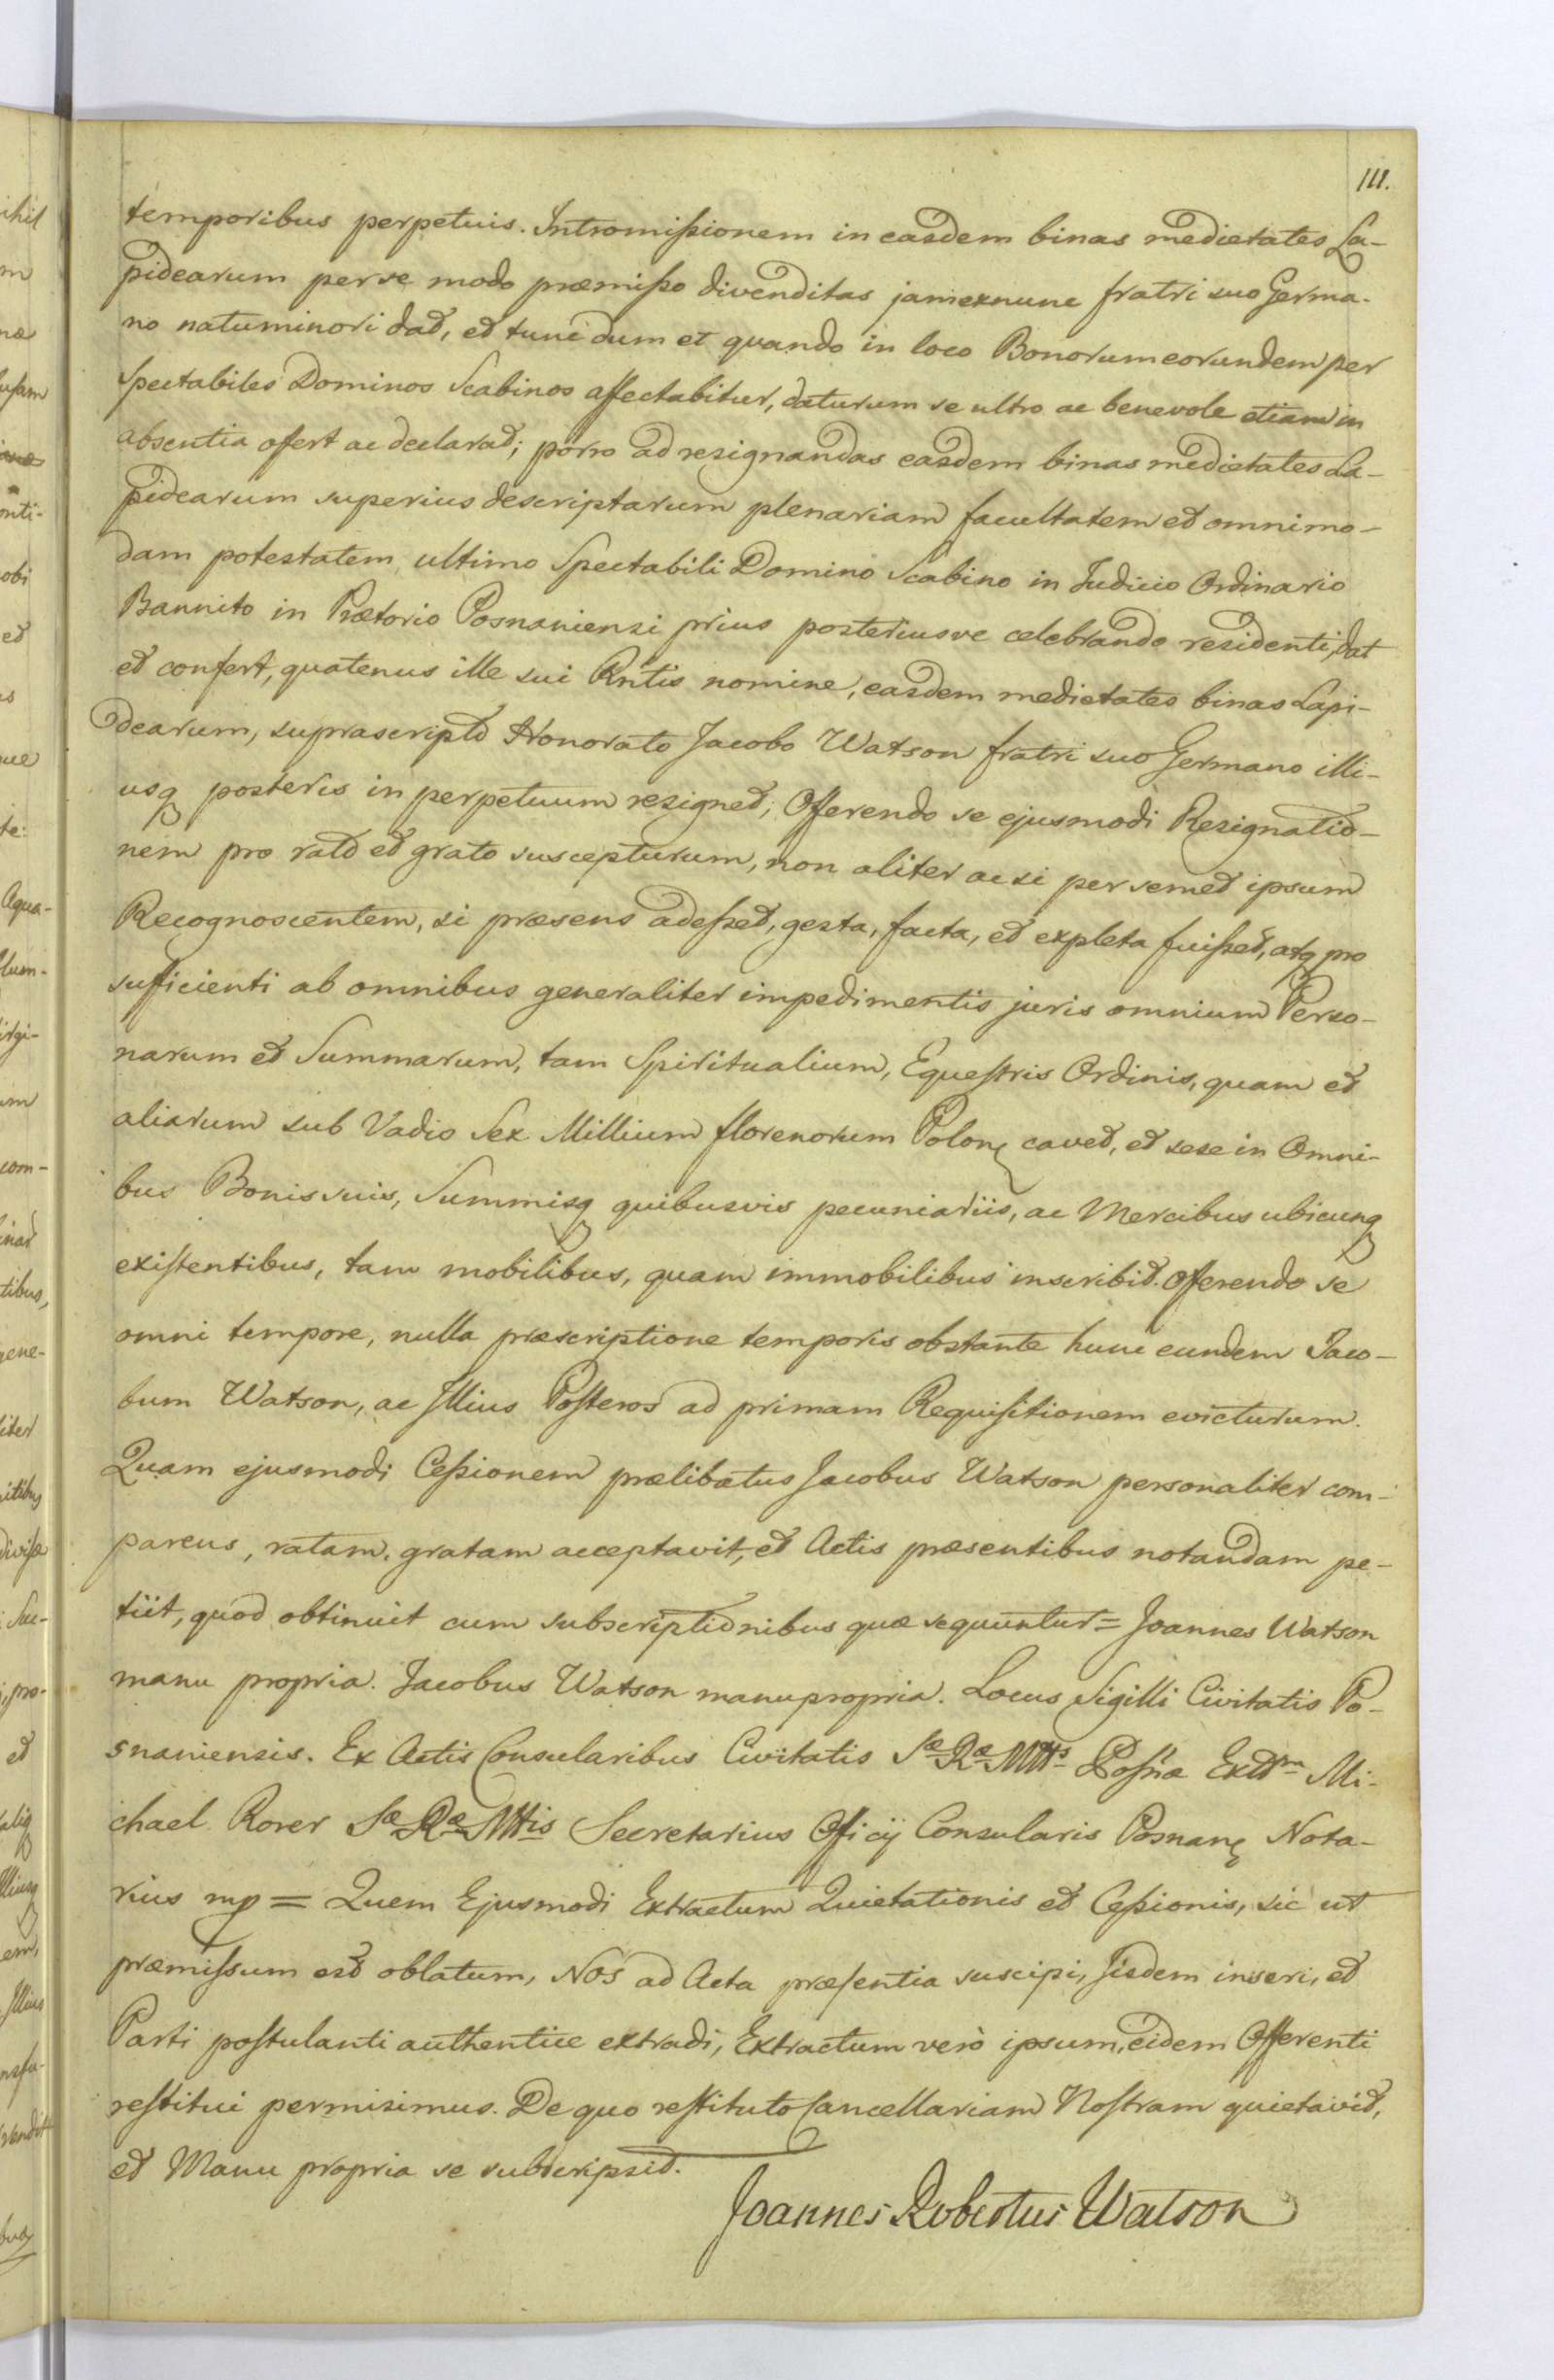 111.
temporibus perpetuis. Intromissionem in easdem binas medietates La-
pidearum per se modo præmisso divenditas jamexnunc fratri suo Germa-
no natuminori dat, et tunc dum et quando in loco Bonorum eorundem per
Spectabiles Dominos Scabinos affectabitur, daturum se ultro ac benevole etiam in
absentia offert ac declarat; porro ad resignandas easdem binas medietates La-
pidearum superius descriptarum plenariam facultatem et omnimo-
dam potestatem ultimo Spectabili Domino Scabino in Judicio Ordinario
Bannito in Prætorio Posnaniensi prius posteriusve celebrando residenti, dat
et confert, quatenus ille sui Rntis nomine, easdem medietates binas Lapi-
dearum, suprascripto Honorato Jacobo Watson fratri suo Germano illi-
usq posteris in perpetuum resignet; Offerendo se ejusmodi Resignatio-
nem pro rato et grato suscepturum, non aliter ac si per semet ipsum
Recognoscentem, si præsens adesset, gesta, facta, et expleta fuisset, atq pro
sufficienti ab omnibus generaliter impedimentis juris omnium Perso-
narum et Summarum, tam Spiritualium, Equestris Ordinis, quam et
aliarum sub Vadio Sex Millium florenorum Polon cavet, et sese in Omni-
bus Bonis suis, Summisq quibusvis pecuniariis, ac Mercibus ubicunq
existentibus, tam mobilibus, quam immobilibus inscribit. Offerendo se
omni tempore, nulla præscriptione temporis obstante hunc eundem Jaco-
bum Watson, ac Illius Posteros ad primam Requisitionem evicturum.
Quam ejusmodi Cessionem prælibatus Jacobus Watson personaliter com-
parens, ratam, gratam acceptavit, et Actis præsentibus notandam pe-
tiit, quod obtinuit cum subscriptionibus quæ sequuntur = Joannes Watson
manu propria. Jacobus Watson manupropria. Locus Sigilli Civitatis Po-
snaniensis. Ex Actis Consularibus Civitatis Sæ Ræ Mttis Posnæ Extt Mi-
chael Rorer Sæ Ræ Mttis Secretarius Officij Consularis Posnan Nota-
rius mp = Quem Ejusmodi Extractum Quietationis et Cessionis, sic ut
præmissum est oblatum, Nos ad Acta præsentia suscipi, Jisdem inseri, et
Parti postulanti authentice extradi, Extractum verò ipsum, eidem Offerenti
restitui permisimus. De quo restituto Cancellariam Nostram quietavit,
et Manu propria se subscripsit.
Joannes Robertus Watson